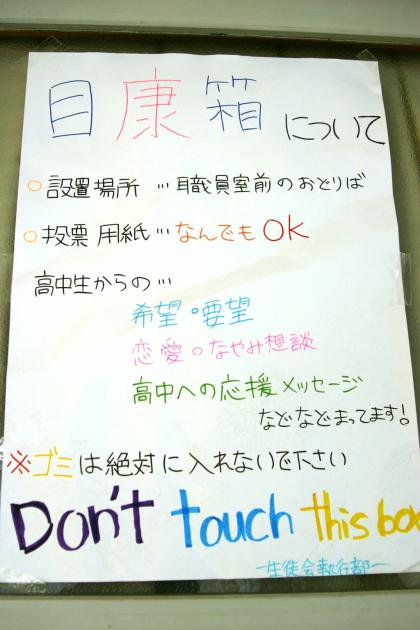 目康箱について
○設置場所…職員室前のおどりば
○投票用紙…なんでもOK
高中生からの…
希望。要望
恋愛。なやみ想談
高中への応援メッセージ
などなどまってます!
※ゴミは絶対に入れないで下さい
Don't touch this box
-生徒会執行部-